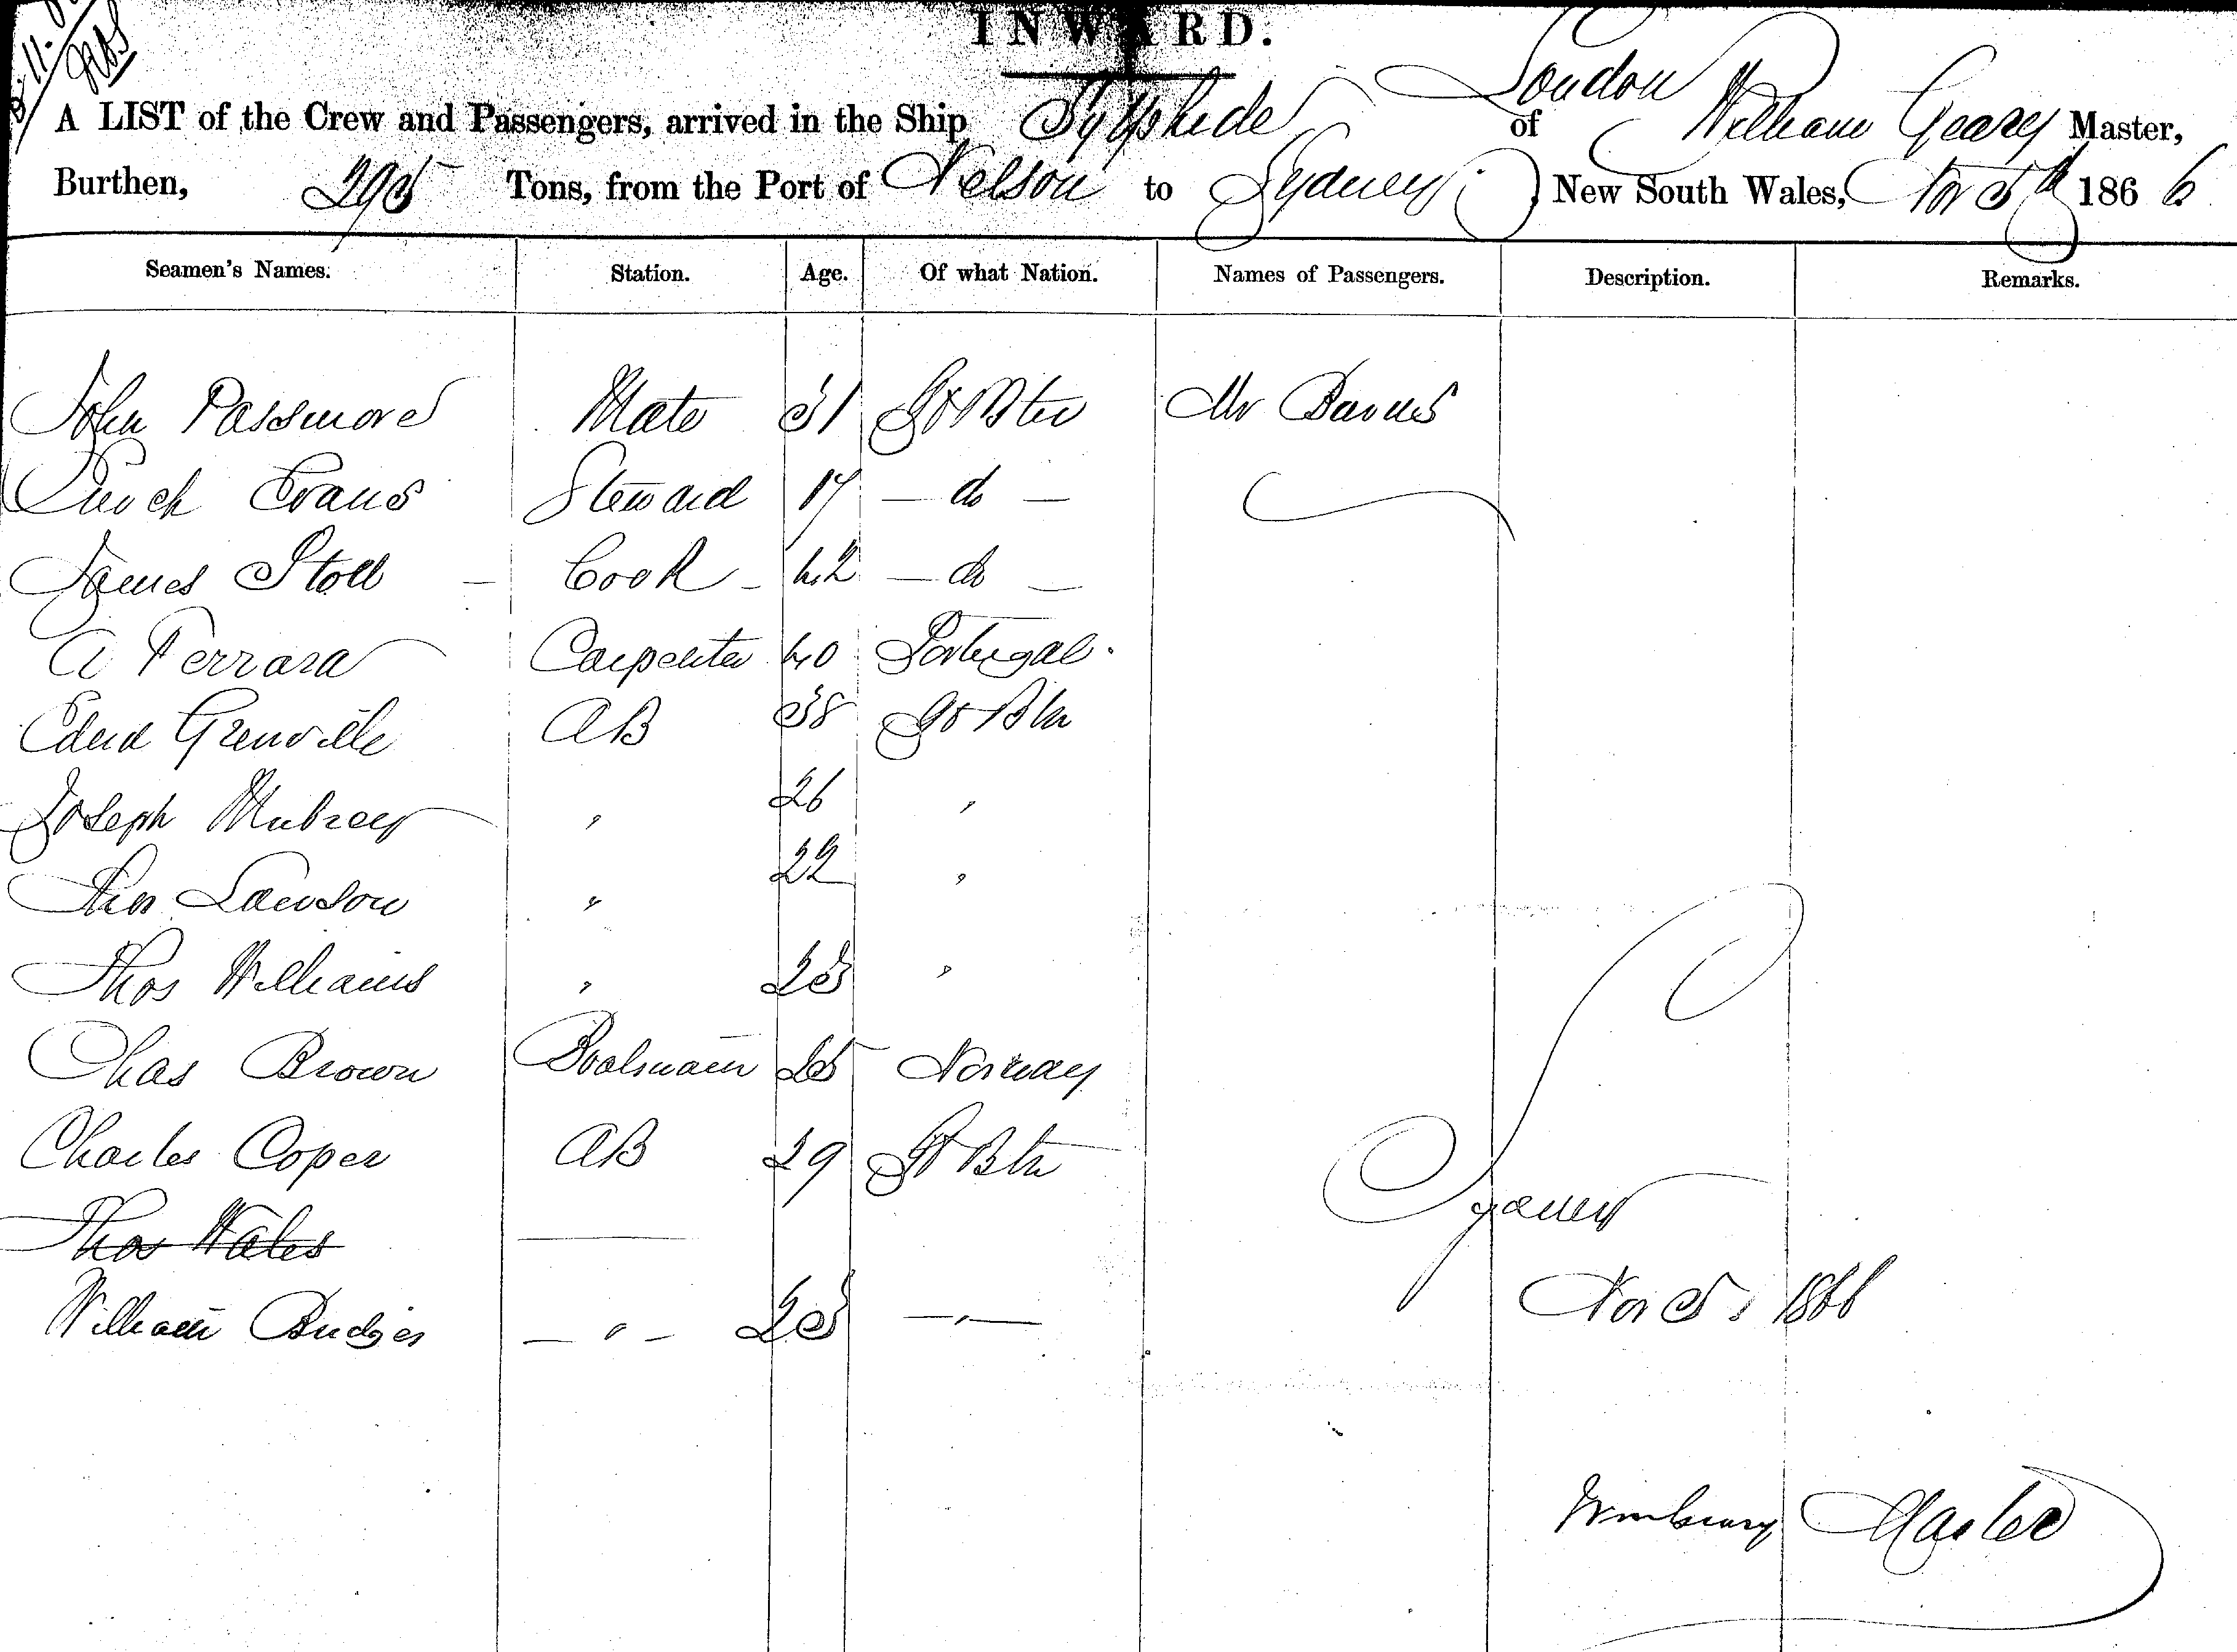 INWARD.
A LIST of the Crew and Passengers, arrived in the Ship Sylphide of London William Geary Master,
Burthen, 295 Tons, from the Port of Nelson to Sydney New South Wales, Nov 5th 1866
Seamen's Names. Station. Age. Of what Nation. Names of Passengers. Description. Remarks.
John Passmore Mate 31 Gt Btn Mr Barnes
Enoch Evans Steward 17 — do —
James Stoll — Cook - 42 — do —
A Ferrara Carpenter 40 Portugal.
Edwd Grenville AB 38 Gt Btn
Joseph " 26 "
Thos Lawson " 22 "
Thos Williams " 23 "
Chas Brown Boatswain 25 Norway
Charles Coper AB 29 Gt Btn
Thos Wales
William Budges — " — 23 — " —
Sydney
Nov 5. 1866
Wm Geary Master